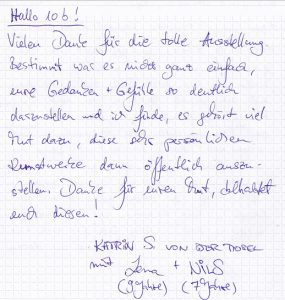 Hallo 10b!
Vielen Danke für die tolle Ausstellung.
Bestimmt war es nicht ganz einfach,
eure Gedanken + Gefühle so deutlich
darzustellen und ich finde, es gehört viel
Mut dazu, diese sehr persönlichen
Kunstwerke dann öffentlich auszu-
stellen. Danke für euren Mut, behaltet
euch diesen!
KATRIN S. VON DER
mit Lena + Nils
(9 Jahre) (7 Jahre)